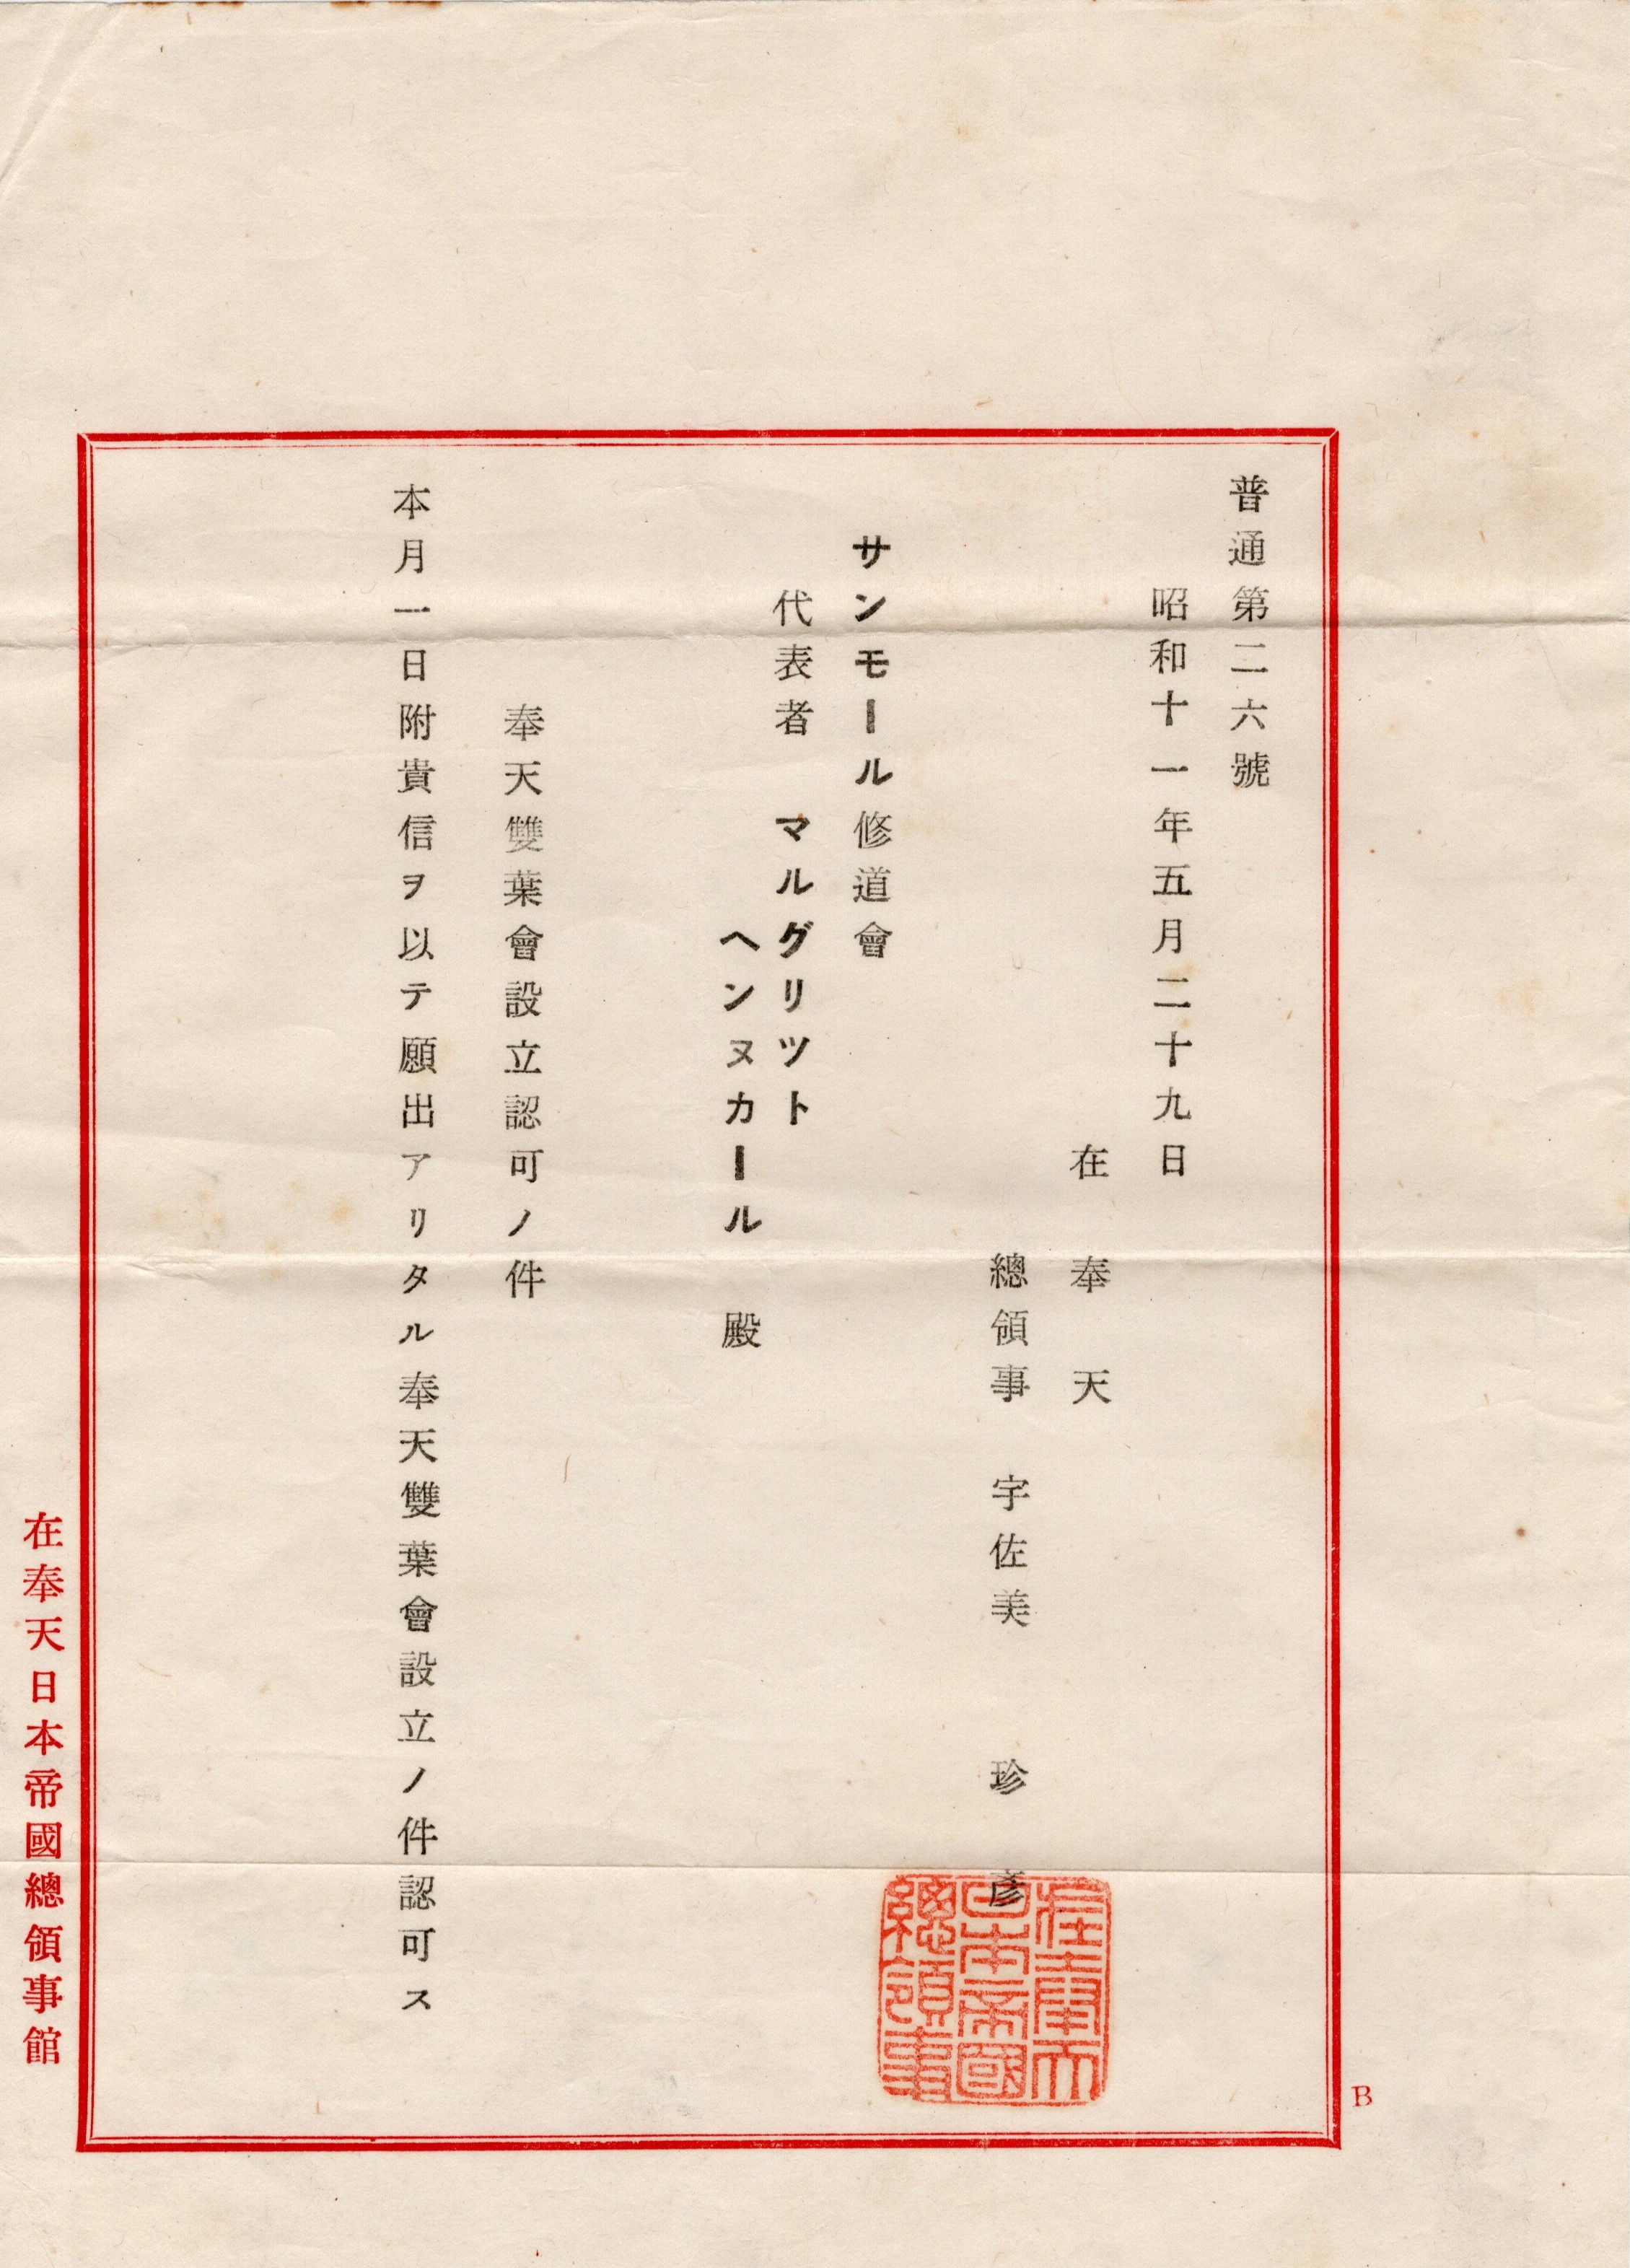 普通第二六號
昭和十一年五月二十九日
在奉天
總領事 宇佐美珍彥
在奉天
日本帝國
總領事
サンモール修道會
代表者 マルグリツト
ヘンヌカール 殿
奉天雙葉會設立認可ノ件
本月一日附貴信ヲ以テ願出アリタル奉天雙葉會設立ノ件認可ス
在奉天日本帝國總領事館
B